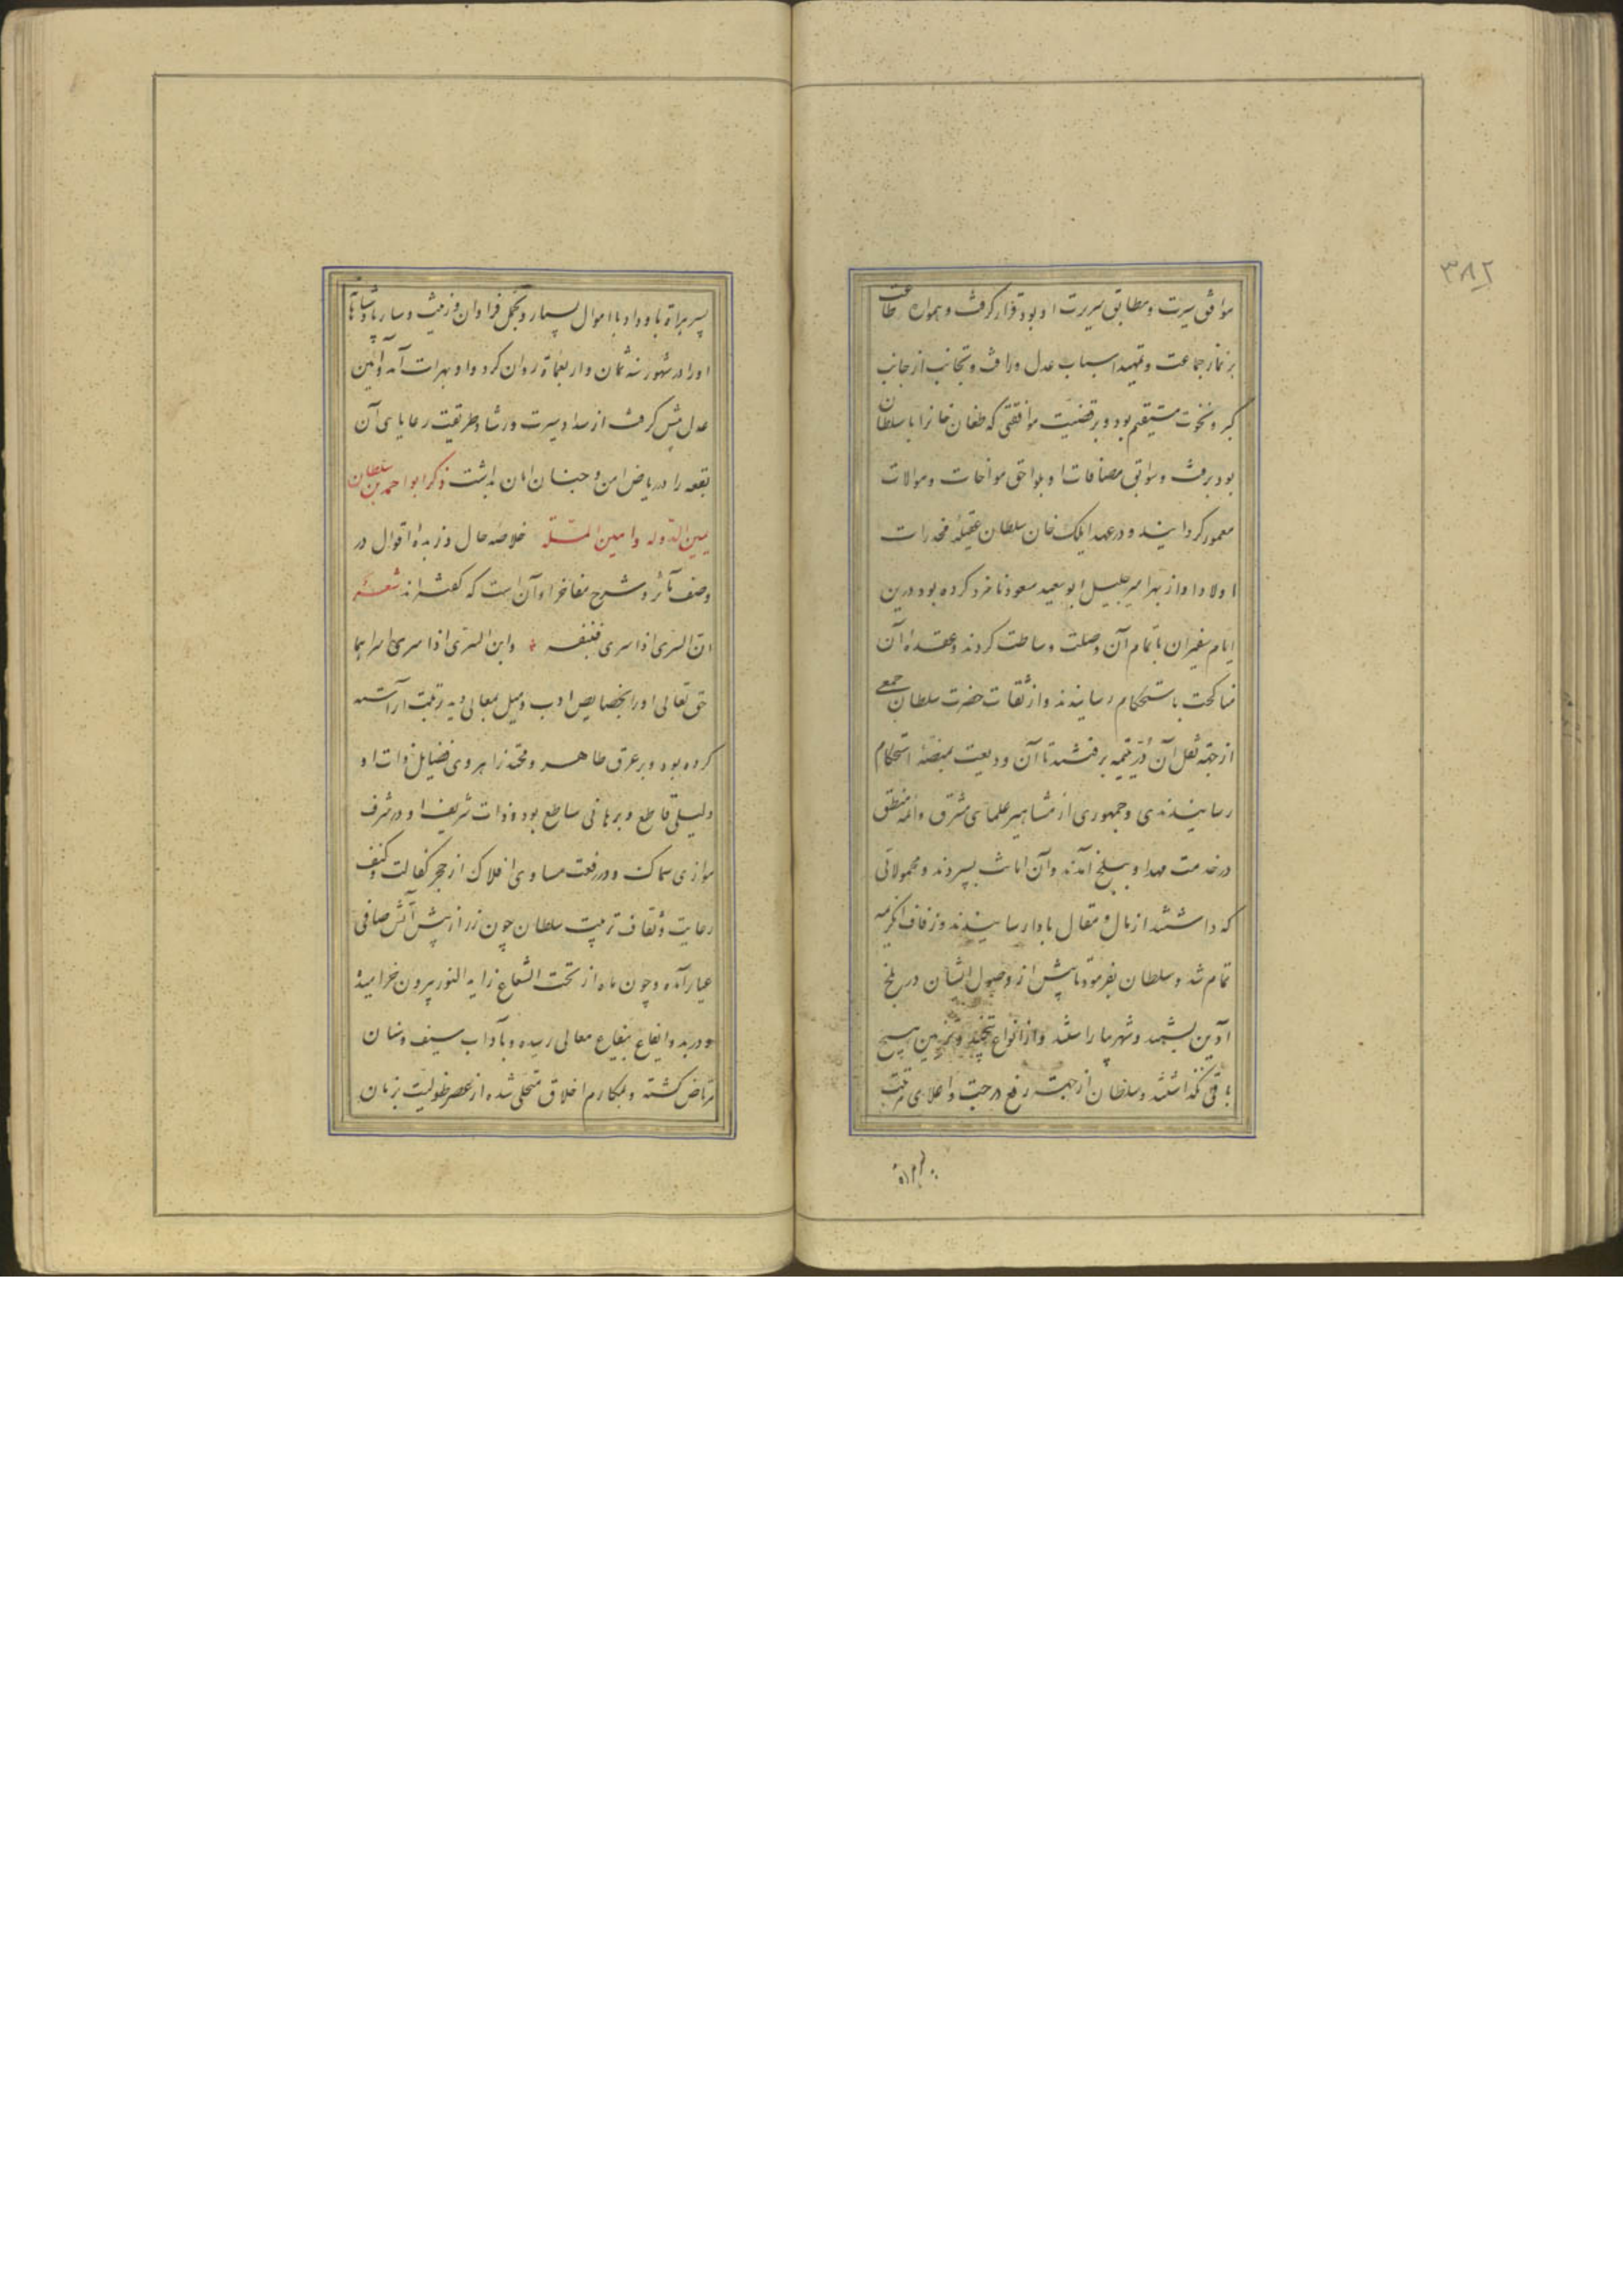 ۳۸۲
موافق سیرت و مطابق سریرت او بود قرار کرفت و همواره طاعت
بر نماز جماعت و تمهید اسباب عدل و رافت و تجانب از جانب
کبر و نخوت مستقیم بود و بر قضیت موافقتی که طغان خانرا با سلطان
بود برفت و سوابق مصافات او بلواحق مواخات و موالات
معمور کردانید و در عهد ایلک خان سلطان عقیلهٔ مخدرات
اولاد او از بهر امیر جلیل ابو سعید مسعود نامزد کرده بود درین
ایام سفیران باتمام آن وصلت وساطت کردند و عقده آن
مناکحت باستحکام رسانیدند و از ثقات حضرت سلطان جمعی
از جهة نقل آن دُرّ یتیمه برفتند تا آن ودیعت بمنصّهٔ استحکام
رسانیدندی و جمهوری از مشاهیر علمای مشرق و ائمه منطق
در خدمت مهد او ببلخ آمدند و آن امانت بسپردند و محمولاتی
که داشتند از مال و مقال بادا رسانیدند و زفاف آن کریمه
تمام شد و سلطان بفرمود تا پیش از وصول ایشان در بلخ
آذین بستند و شهر بیاراستند و از انواع و تزیین هیچ
باقی نکذاشتند و سلطان از جهت رفع درجت و اعلای مرتبت
پسر براة باو داد با اموال بسیار و تجمل فراوان و زینت و ساز پادشاهانه
اورا در شهور سنه ثمان و اربعمائة روان کرد و او بهراة آمد و آیین
عدل پیش کرفت از سداد سیرت و رشاد طریقت رعایای آن
بقعه را در ریاض امن و جنان امان بداشت ذکر ابو احمد بن سلطان
یمین الدوله و امین الملّة خلاصه حال و زبده اقوال در
وصف مآثر و شرح مفاخر او آن است که کفته‌اند شعر
ان السری اذا سری فبنفسه * وابن السری اذا سری اسراهما
حق تعالی اورا بخصایص ادب و میل بمعالی و رتبت آراسته
کرده بود و بر عرق طاهر و محتد زاهر وی فضایل ذات او
دلیلی قاطع و برهانی ساطع بود و ذات شریف او در شرف
موازی سماک و در رفعت مساوی افلاک از حجر کفالت و کنف
رعایت و ثقاف تربیت سلطان چون زر از پیش آتش صافی
عیار آمده و چون ماه از تحت الشعاع زاید النور بیرون خرامیده
و در بدو ایفاع بیفاع معالی رسیده و بآداب سیف و سنان
مرتاض کشته و بمکارم اخلاق متحلی شده از عصر طفولیت بزمان